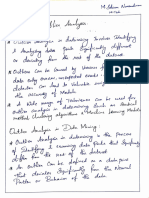 M. Selvam
Outlier Analysis
Outlier Analysis in Datamining Involves Identifying
& Analyzing data Points Significantly different
or deviating from the rest of the dataset
Outliers can be Caused by Various factors
data entry errors, unexpected events
Outliers can lead to Valuable
the accuracy of Models
A Wide range of Techniques can be used for
outlier analysis in datamining Such as Statistical
method, Clustering algorithms & Machine Learning Models
Outlier Analysis in Data Mining:
Outlier Analysis in datamining is the Process
of Identifying & examining data Points that Significantly
differ from the rest of the dataset
An Outlier can be defined as a data point
that deviates Significantly from the Normal
Pattern or Behavior of the data